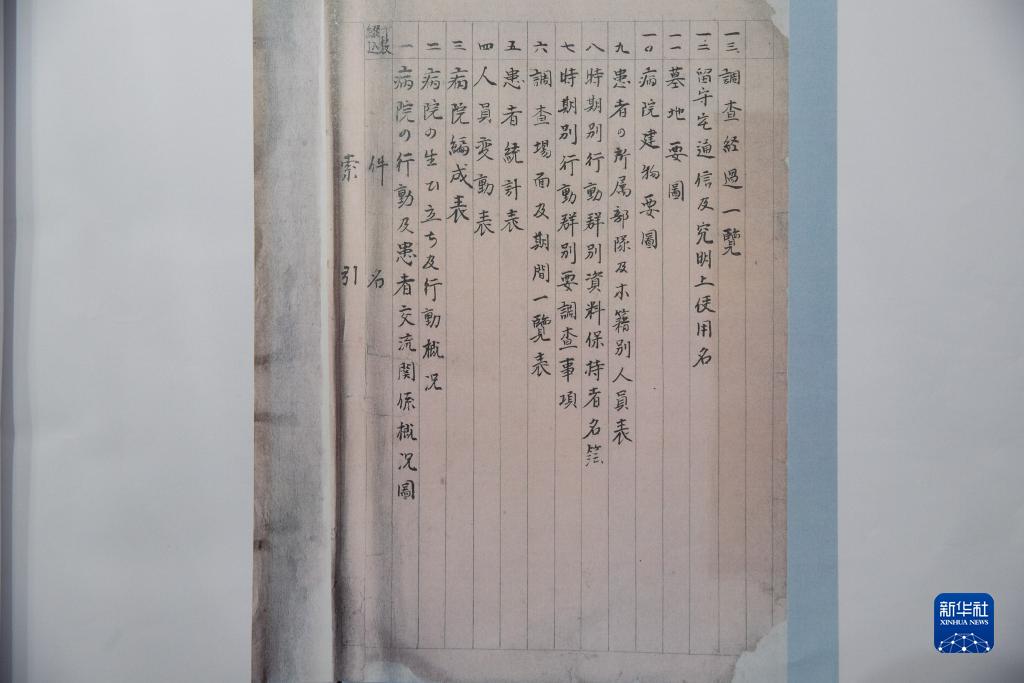 索引
件名
綴込
一 病院の行動及患者交流関係概況圖
二 病院の生ひ立ち及行動概況
三 病院編成表
四 人員変動表
五 患者統計表
六 調査場面及期間一覽表
七 時期別行動群別要調査事項
八 時期別行動群別資料保持者名簿
九 患者の所属部隊及本籍別人員表
一〇 病院建物要圖
一一 墓地要圖
一二 留守宅通信及究明上使用名
一三 調査経過一覽
新华社
XINHUA NEWS